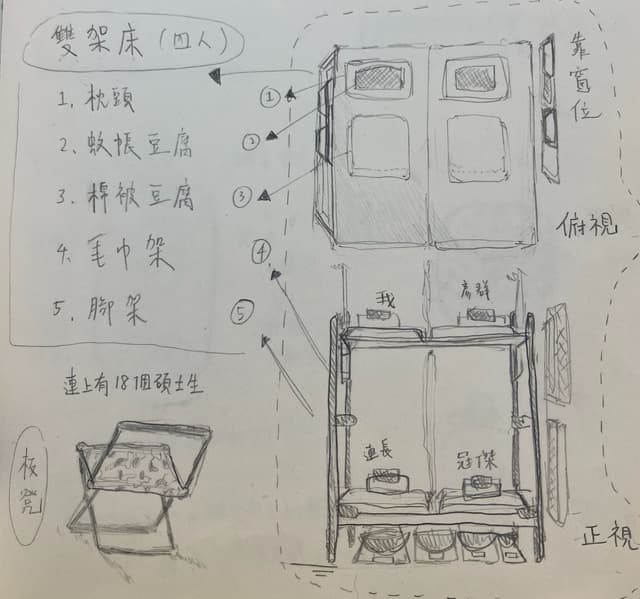 雙架床(四人)
1. 枕頭
2. 蚊帳豆腐
3. 棉被豆腐
4. 毛巾架
5. 腳架
①
②
③
④
⑤
靠窗位
俯視
我
彥群
連長
冠傑
正視
連上有18個碩士生
板凳